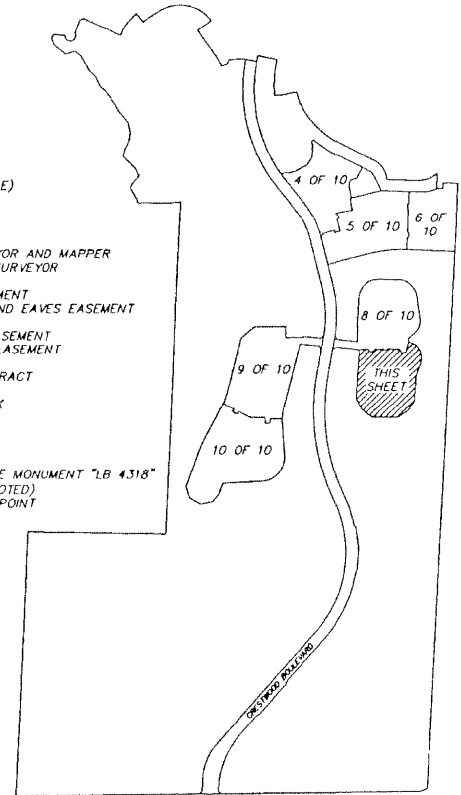 E)
YOR AND MAPPER
SURVEYOR
MENT
ND EAVES EASEMENT
SEMENT
EASEMENT
RACT
K
E MONUMENT "LB 4318"
OTED)
POINT
4 OF 10
5 OF 10
6 OF
10
8 OF 10
THIS
SHEET
9 OF 10
10 OF 10
CRESTWOOD BOULEVARD